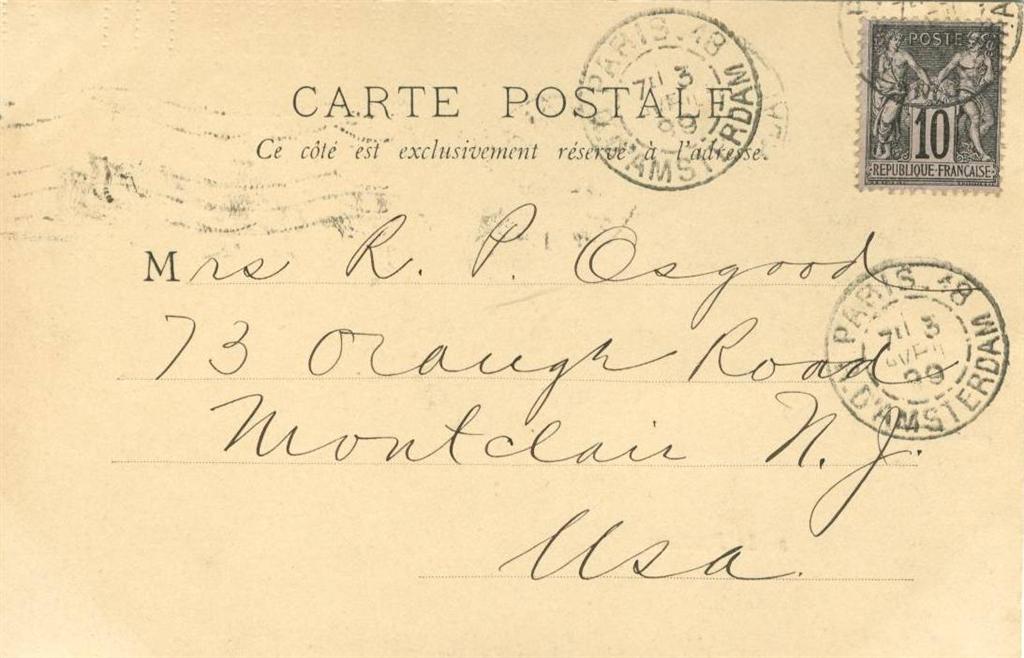 CARTE POSTALE
Ce côté est exclusivement réservé à l'adresse.
PARIS.18
7H 3
99
R. D'AMSTERDAM
POSTES
10
REPUBLIQUE FRANÇAISE
Mrs R. P. Osgood
73 Orange Road
Montclair N. J.
Usa.
PARIS.18
7H 3
99
R. D'AMSTERDAM